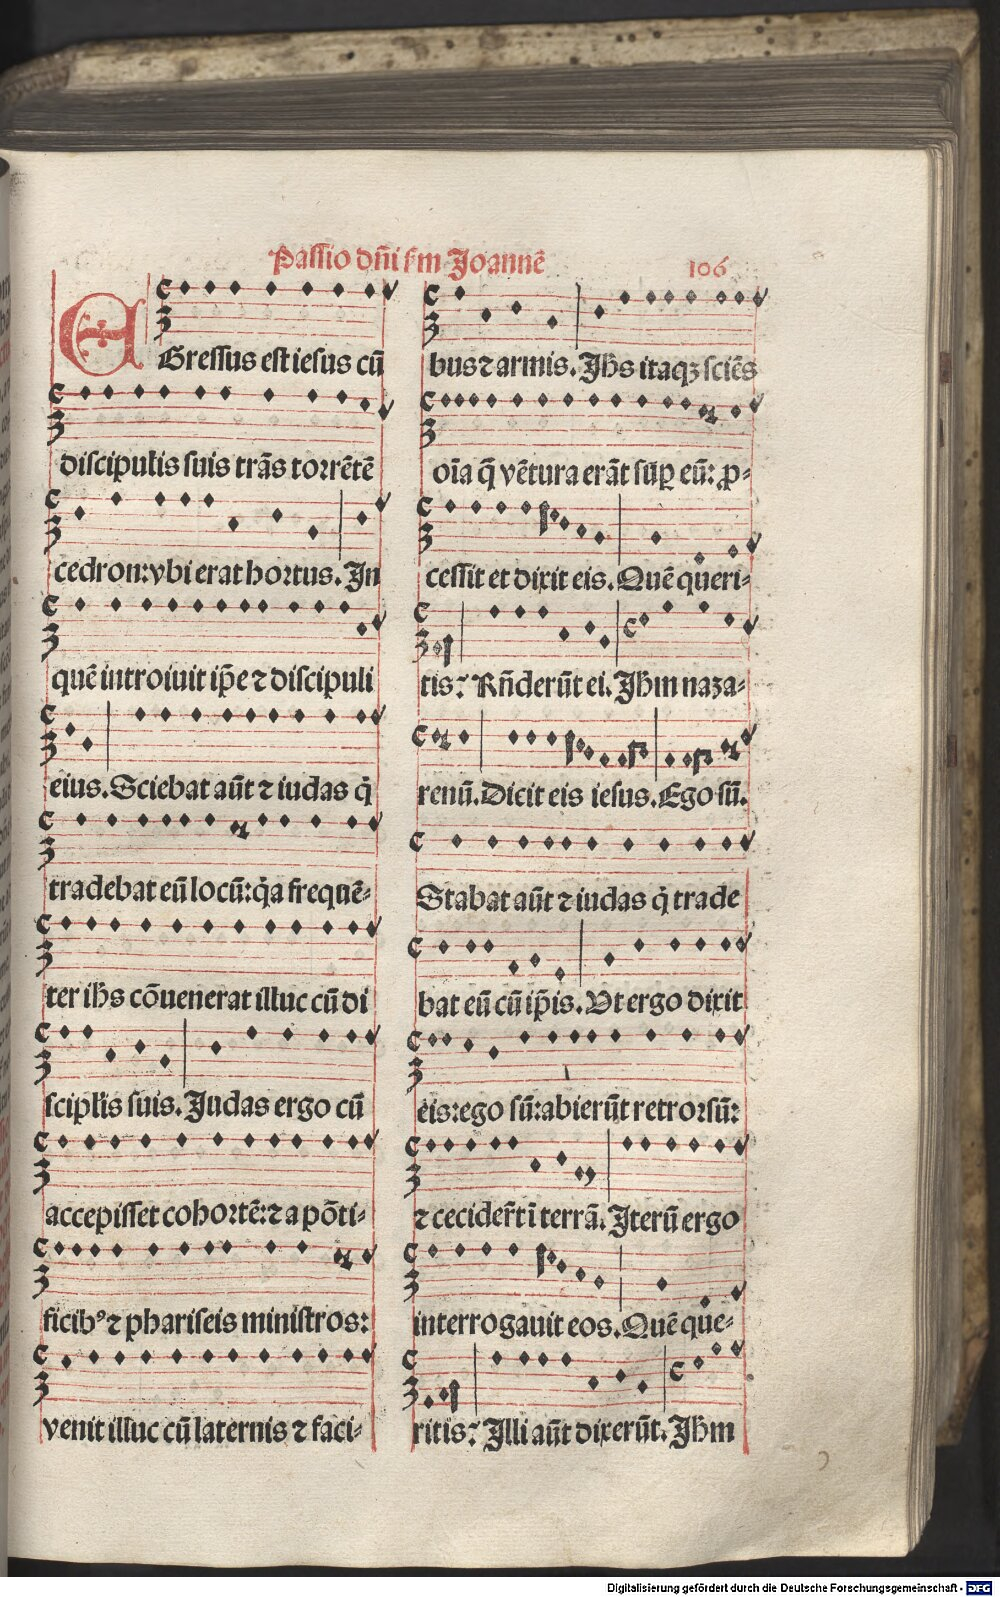 Passio dñi ẜm Joannē
106
EGressus est iesus cū
discipulis suis trās torrētē
cedron: vbi erat hortus. In
quē introiuit ip̄e ⁊ discipuli
eius. Sciebat aūt ⁊ iudas q̇
tradebat eū locū: q̇a frequē-
ter ih̄s cōuenerat illuc cū di
scipl̄is suis. Judas ergo cū
accepisset cohortē: ⁊ a pōti-
ficibꝰ ⁊ phariseis ministros:
venit illuc cū laternis ⁊ faci-
bus ⁊ armis. Jh̄s itaqꝫ sciēs
oīa q̄ vētura erāt suꝑ eū: ꝓ-
cessit et dixit eis. Quē queri-
tis? Rñderūt ei. Jh̄m naza-
renū. Dicit eis iesus. Ego sū.
Stabat aūt ⁊ iudas q̇ trade
bat eū cū ip̄is. Vt ergo dixit
eis: ego sū: abierūt retrorsū:
⁊ cecider̄t ī terrā. Jterū ergo
interrogauit eos. Quē que-
ritis? Jlli aūt dixerūt. Jh̄m
Digitalisierung gefördert durch die Deutsche Forschungsgemeinschaft - DFG